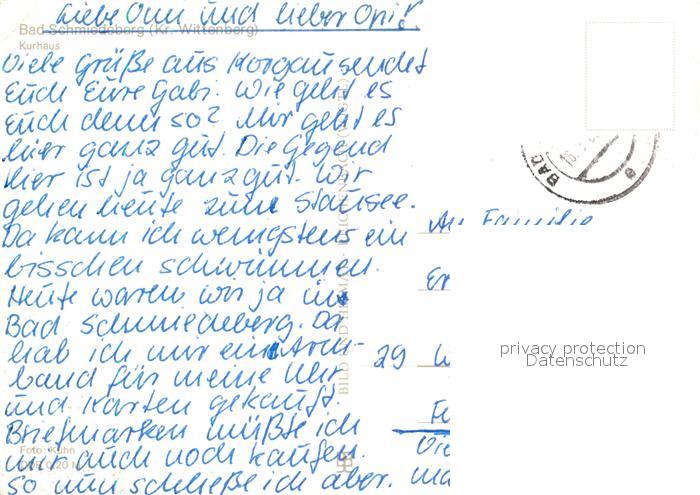 Liebe Omi und lieber Opi!
Bad Schmiedeberg (Kr. Wittenberg)
Kurhaus
Viele Grüße aus Korgau sendet
Euch Eure Gabi. Wie geht es
Euch denn so? Mir geht es
hier ganz gut. Die Gegend
hier ist ja ganz gut. Wir
gehen heute zum Stausee.
Da kann ich wenigstens ein
bisschen schwimmen.
Heute waren wir ja in
Bad Schmiedeberg. Da
hab ich mir ein Arm-
band für meine Uhr
und Karten gekauft.
Briefmarken müßte ich
mir auch noch kaufen.
So nun schließe ich aber.
Foto: Kühn
BILD UND HEIMAT
BAD
An Familie
29 W
privacy protection
Datenschutz